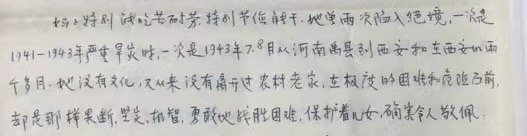 妈妈特别能吃苦耐劳,特别节俭能干。她曾两次陷入绝境,一次是
1941-1943年严重旱灾时,一次是1943年7.8月从河南禹县到西安和在西安的两
个多月。她没有文化,又从来没有离开过农村老家,在极度的困难和危险面前,
却是那样果断,坚定,机智,勇敢地战胜困难,保护着儿女,确实令人敬佩。